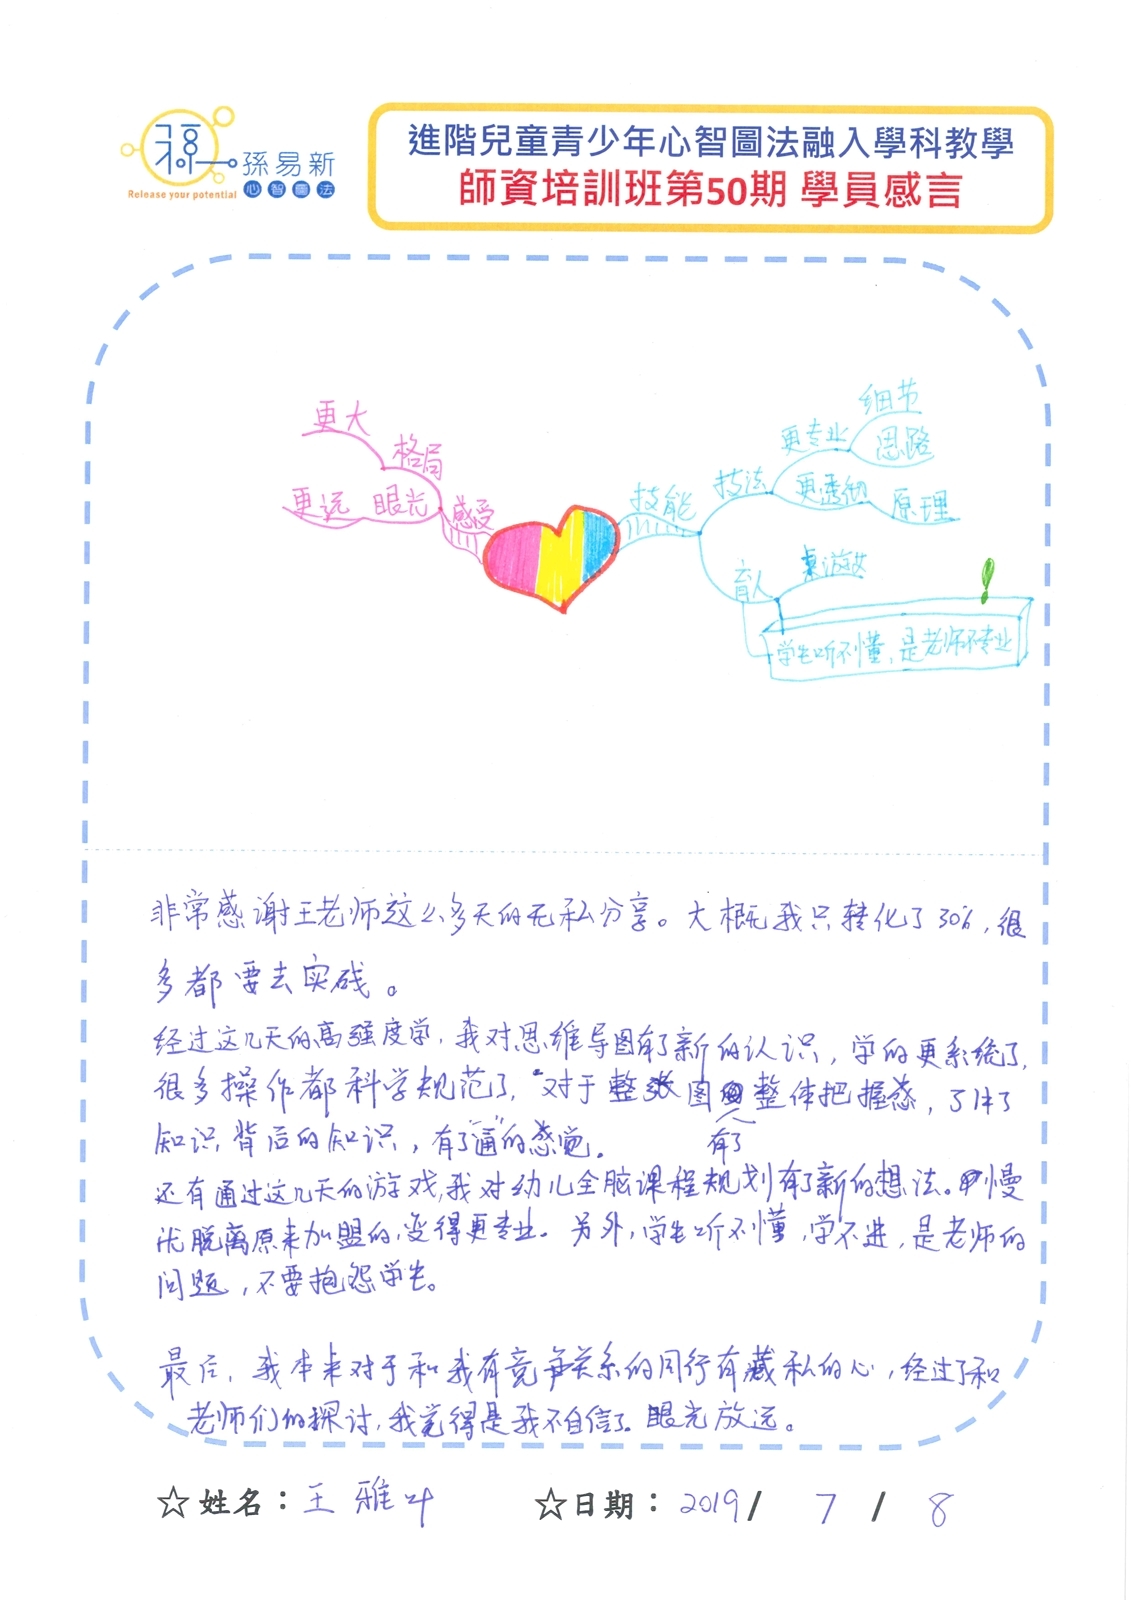 孫易新
心智圖法
Release your potential
進階兒童青少年心智圖法融入學科教學
師資培訓班第50期 學員感言
更大
格局
更远 眼光
感受
技能
技法
更专业
细节
思路
更透彻
原理
育人
桌游
学生听不懂，是老师不专业
非常感谢王老师这么多天的无私分享。大概我只转化了30%，很
多都要去实践。
经过这几天的高强度学，我对思维导图有了新的认识，学的更系统了，
很多操作都科学规范了，对于整张图整体把握感，了解了
有了
知识背后的知识，有了"通"的感觉。
还有通过这几天的游戏，我对幼儿全脑课程规划有了新的想法。慢
脱离原来加盟的，变得更专业。另外，学生听不懂，学不进，是老师的
问题，不要抱怨学生。
最后，我本来对于和我有竞争关系的同行有藏私的心，经过了和
老师们的探讨，我觉得是我不自信了。眼光放远。
☆姓名：王雅
☆日期：2019/ 7 / 8